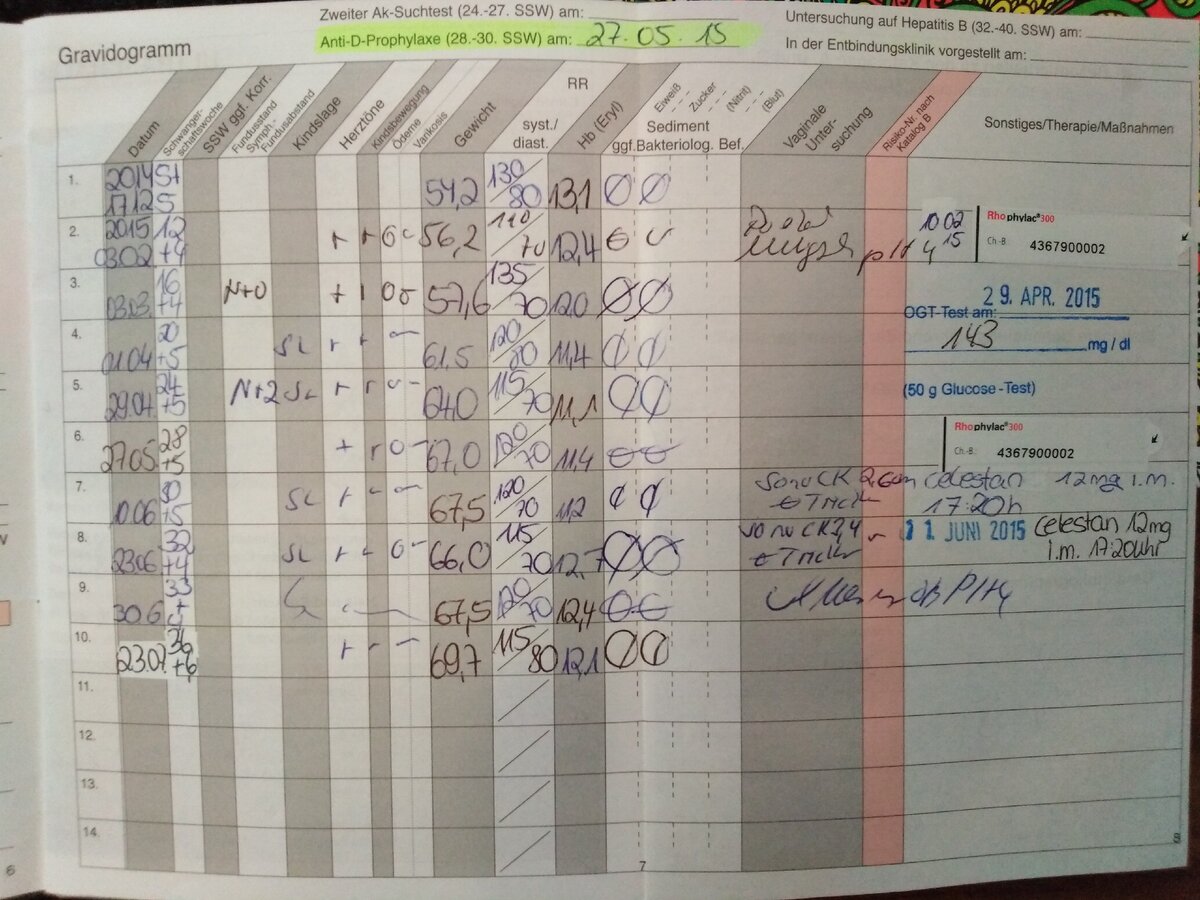 Gravidogramm
Zweiter Ak-Suchtest (24.-27. SSW) am:
Anti-D-Prophylaxe (28.-30. SSW) am: 27.05.15
Untersuchung auf Hepatitis B (32.-40. SSW) am:
In der Entbindungsklinik vorgestellt am:
Datum
Schwanger-
schaftswoche
SSW ggf. Korr.
Fundusstand
Symph.-
Fundusabstand
Kindslage
Herztöne
Kindsbewegung
Ödeme
Varikosis
Gewicht
RR
syst./
diast.
Hb (Ery)
Eiweiß
Zucker
(Nitrit)
(Blut)
Sediment
ggf. Bakteriolog. Bef.
Vaginale
Unter-
suchung
Risiko-Nr. nach
Katalog B
Sonstiges/Therapie/Maßnahmen
1. 2014 17.12 5 54,2 130/80 13,1 ∅ ∅
2. 2015 03.02 12+4 56,2 110/70 12,4
10.02
15
Rhophylac®300
Ch.-B. 4367900002
3. 03.03. 16+4 N+0 + 57,6 135/70 12,0 ∅ ∅
29. APR. 2015
OGT-Test am:
143 mg / dl
4. 01.04 20+5 SL + + 61,5 120/80 11,4 ∅ ∅
5. 29.04 24+5 N+2 SL + + 64,0 115/70 11,1 ∅ ∅
(50 g Glucose-Test)
6. 27.05 28+5 + + 67,0 120/70 11,4
Rhophylac®300
Ch.-B.: 4367900002
7. 10.06 30+5 SL + 67,5 120/70 11,2 ∅ ∅ Sono CK 2,6cm Celestan 12mg i.m.
17:20h
8. 23.06 32+4 SL + + 66,0 115/70 12,7 ∅ ∅ Sono CK 3,4
11. JUNI 2015 Celestan 12mg
i.m. 17:20Uhr
9. 30.6 33+4 67,5 120/70 12,4
10. 23.07 36+6 + 69,7 115/80 12,1 ∅ ∅
11.
12.
13.
14.
6
7
8